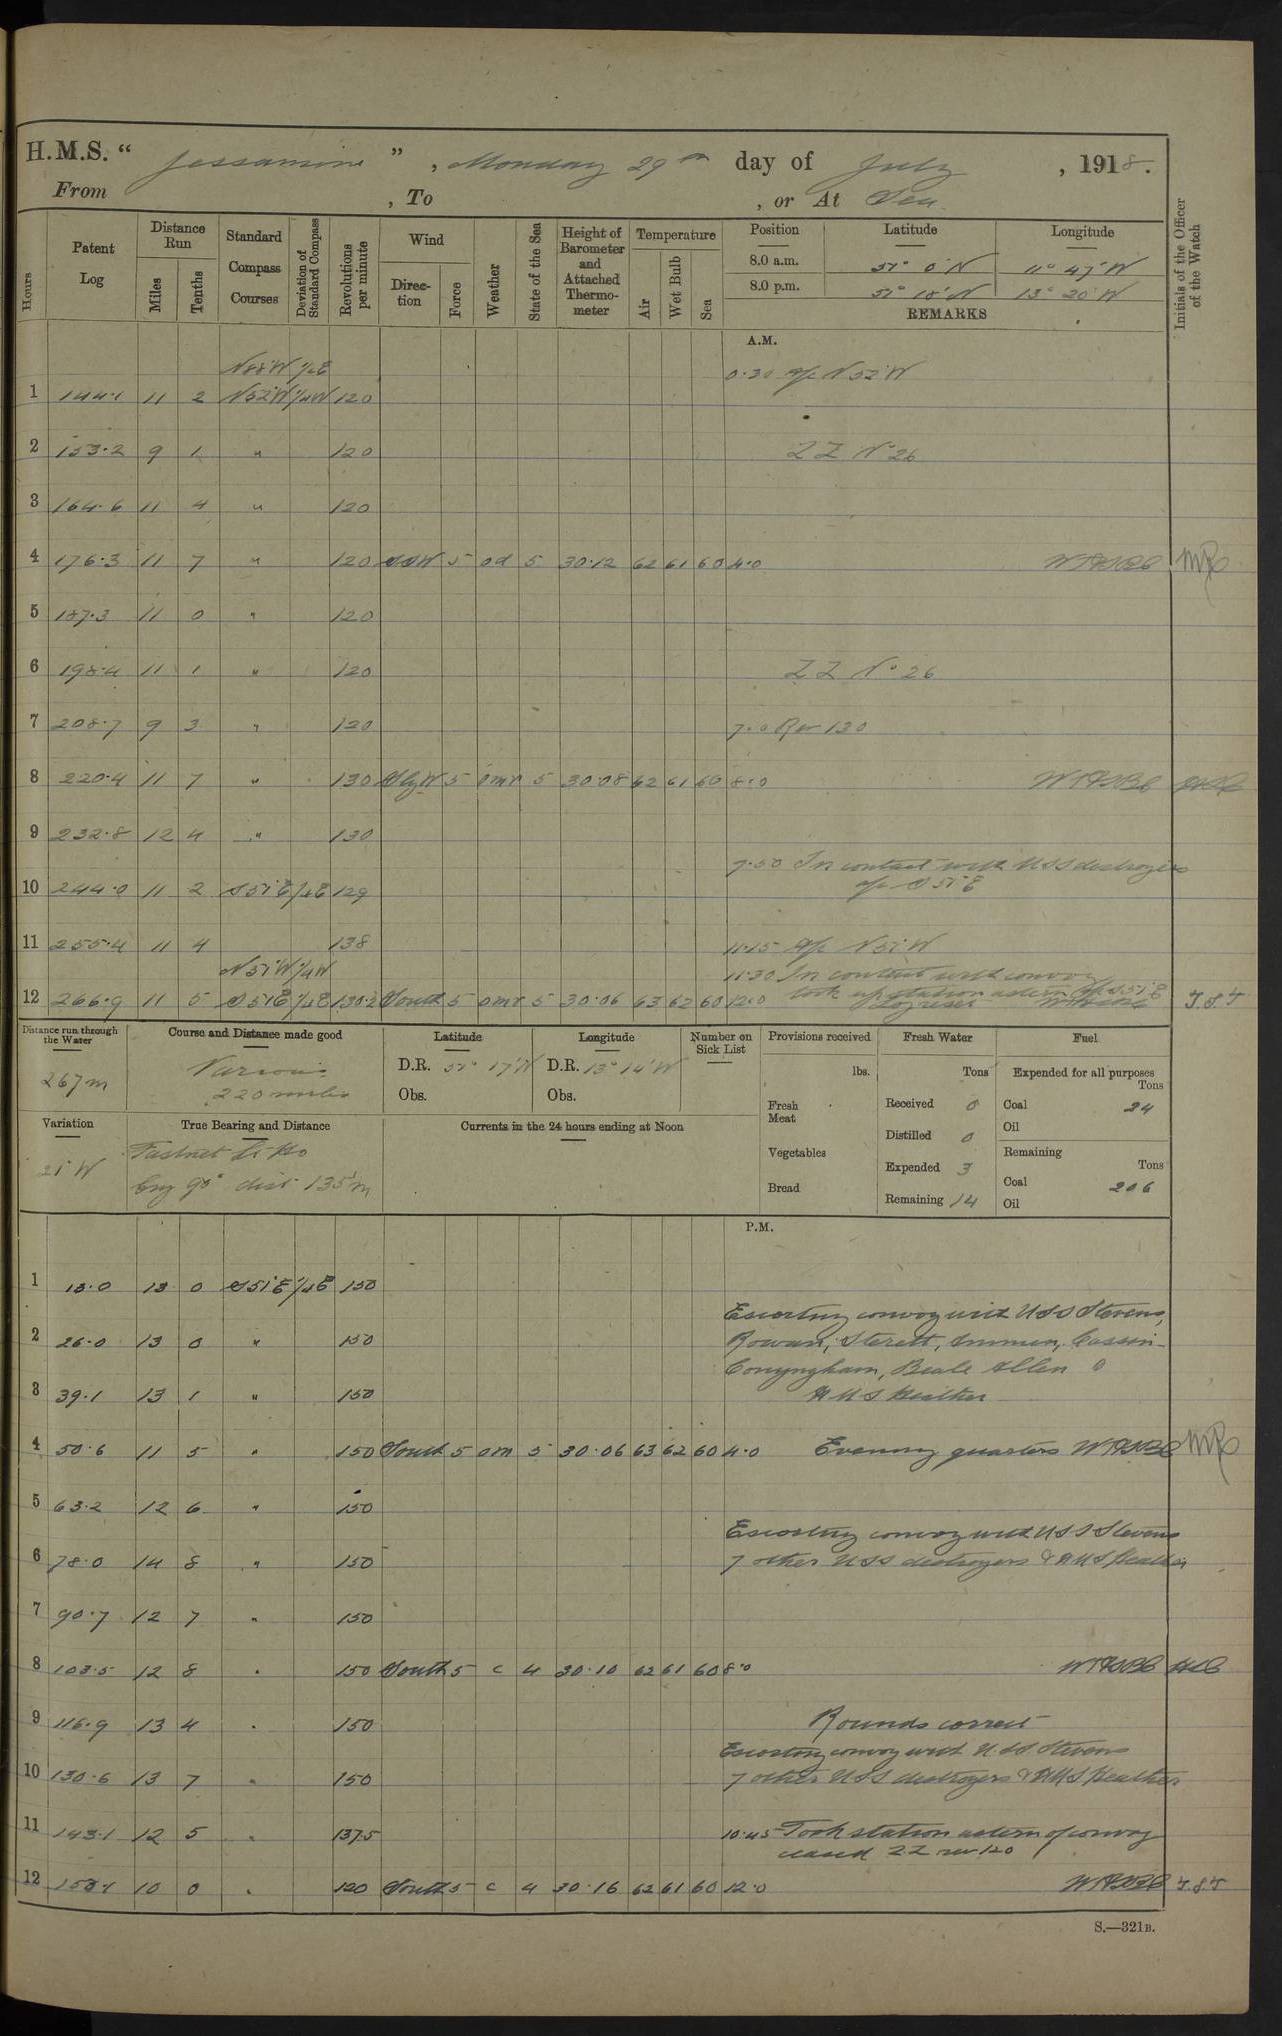 H.M.S. " Jessamine ", Monday 29th day of July, 1918.
From , To , or At Sea
Hours
Patent Log
Distance Run
Miles
Tenths
Standard Compass Courses
Deviation of Standard Compass
Revolutions per minute
Wind
Direction
Force
Weather
State of the Sea
Height of Barometer and Attached Thermometer
Temperature
Air
Wet Bulb
Sea
Position Latitude Longitude
8.0 a.m. 51° 0' N 11° 47' W
8.0 p.m. 51° 18' N 13° 20' W
REMARKS
Initials of the Officer of the Watch
A.M.
0.30 A/c N 52 W
1 144.1 11 2 N52°W 120
2 153.2 9 1 " 120 ZZ No 26
3 164.6 11 4 " 120
4 176.3 11 7 " 120 SSW 5 od 5 30.12 62 61 60 4.0
5 187.3 11 0 " 120
6 198.4 11 1 " 120 ZZ No 26
7 208.7 9 3 " 120 7.0 Rev 130
8 220.4 11 7 " 130 SbyW 5 omr 5 30.08 62 61 60 8.0
9 232.8 12 4 " 130
9.50 In contact with USS destroyers
10 244.0 11 2 S51°E 129 a/c S 51°E
11 255.4 11 4 138 11.15 A/c N 51°W
N51°W 11.30 In contact with convoy
12 266.9 11 5 S51E 130.2 South 5 omr 5 30.06 63 62 60 12.0 took up station astern A/c S 51°E T.S.T
Distance run through the Water
267m
Course and Distance made good
Various
220 miles
Latitude
D.R. 51° 17' N
Obs.
Longitude
D.R. 13° 14' W
Obs.
Number on Sick List
Provisions received
lbs.
Fresh Meat
Vegetables
Bread
Fresh Water
Tons
Received 0
Distilled 0
Expended 3
Remaining 14
Fuel
Expended for all purposes
Tons
Coal 24
Oil
Remaining
Tons
Coal 206
Oil
Variation
21° W
True Bearing and Distance
Fastnet Lt Ho
brg 90° dist 135m
Currents in the 24 hours ending at Noon
P.M.
1 13.0 13 0 S51°E 150
Escorting convoy with USS Stevens,
2 26.0 13 0 " 150 Rowan, Sterett, Ammen, Cassin
Conyngham, Beale Allen &
3 39.1 13 1 " 150 HMS Heather
4 50.6 11 5 " 150 South 5 om 5 30.06 63 62 60 4.0 Evening quarters
5 63.2 12 6 " 150
Escorting convoy with USS Stevens
6 78.0 14 8 " 150 7 other USS destroyers & HMS Heather
7 90.7 12 7 " 150
8 103.5 12 8 " 150 South 5 c 4 30.10 62 61 60 8.0
9 116.9 13 4 " 150 Rounds correct
Escorting convoy with U.S.S. Stevens
10 130.6 13 7 " 150 7 other USS destroyers & HMS Heather
11 143.1 12 5 " 137.5 10.45 Took station astern of convoy
ceased ZZ rev 120
12 153.1 10 0 " 120 South 5 c 4 30.16 62 61 60 12.0 T.S.T
S.—321B.